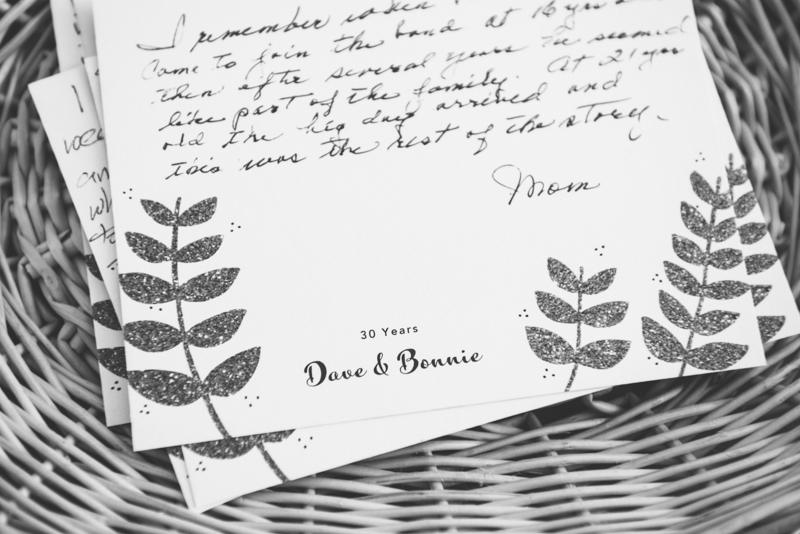 I remember when
Came to join the band at 16 yrs
then after several years He seemed
like part of the family. At 21 yrs
old the big day arrived and
this was the rest of the story.
Mom
30 Years
Dave & Bonnie